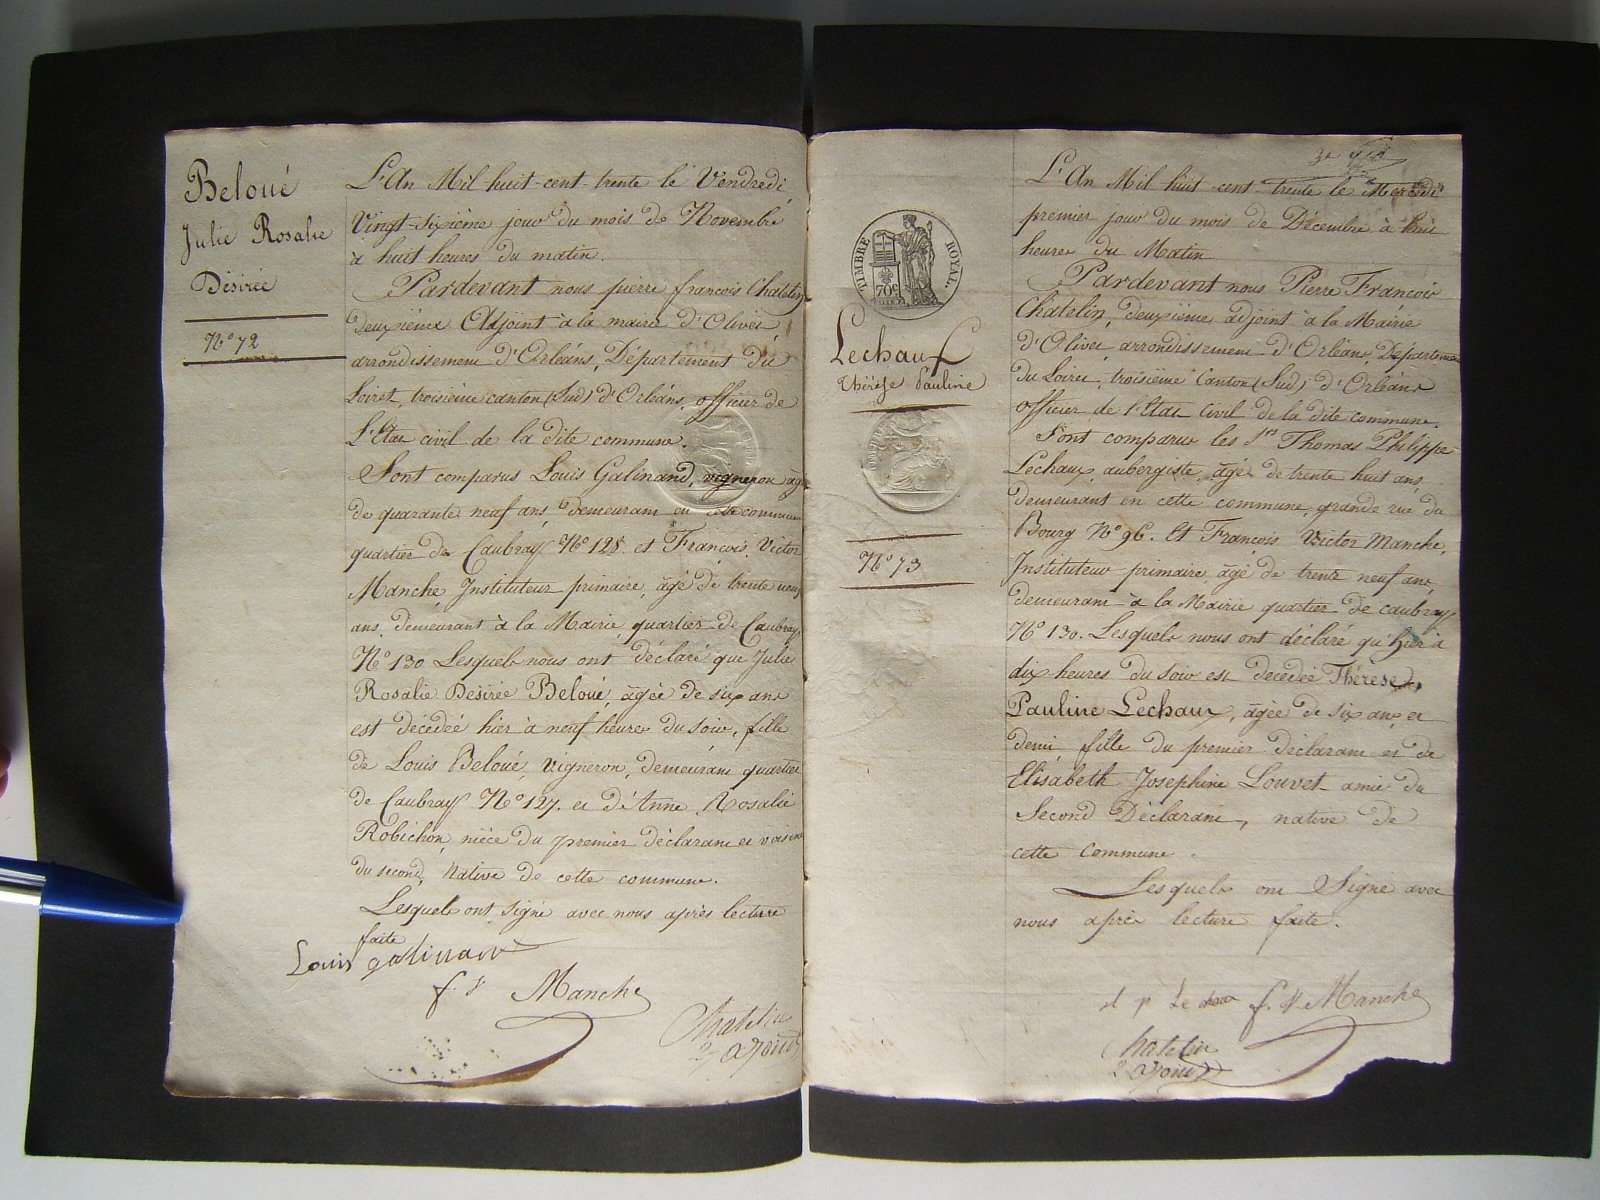 Beloué
Julie Rosalie
Désirée
N° 72
L'An Mil huit-cent-trente le Vendredi
Vingt-Sixième jour du mois de Novembre
à huit heures du matin.
Pardevant nous pierre françois Chatelin
deuxième Adjoint à la mairie d'Olivet
arrondissement d'Orléans, Département du
Loiret, troisième canton (Sud) d'Orléans, officier de
L'Etat civil de la dite commune.
Sont comparus Louis Galinand, vigneron âgé
de quarante neuf ans, demeurant en cette commune
quartier de Caubray N° 128 et François Victor
Manche, Instituteur primaire, âgé de trente neuf
ans, demeurant à la Mairie, quartier de Caubray
N° 130 Lesquels nous ont déclaré que Julie
Rosalie Désirée Beloué, âgée de six ans
est décédée hier à neuf heures du soir, fille
de Louis Beloué, Vigneron, demeurant quartier
de Caubray N° 127. et d'Anne Rosalie
Robichon, nièce du premier déclarant et voisine
du second, Native de cette commune.
Lesquels ont signé avec nous après lecture
faite
Louis galinand
f. V Manche
Chatelin
2e adjoint
TIMBRE ROYAL
70c
Lechaux
Thérèse Pauline
N° 73
L'An Mil huit-cent-trente le Mercredi
premier jour du mois de Décembre à huit
heures du Matin
Pardevant nous Pierre François
Chatelin, deuxième adjoint à la Mairie
d'Olivet arrondissement d'Orléans, Département
du Loiret, troisième Canton (Sud) d'Orléans
officier de l'Etat Civil de la dite commune.
Sont comparus les Srs Thomas Philippe
Lechaux, aubergiste, âgé de trente huit ans,
demeurant en cette commune, grande rue du
Bourg N° 96. Et François Victor Manche,
Instituteur primaire, âgé de trente neuf ans,
demeurant à la Mairie quartier de Caubray
N° 130. Lesquels nous ont déclaré qu'hier à
dix heures du soir est décédée Thérèse
Pauline Lechaux, âgée de six ans et
demi fille du premier déclarant et de
Elisabeth Josephine Louvet amie du
Second Déclarant, native de
cette Commune.
Lesquels ont Signé avec
nous après lecture faite.
Lechaux f. V Manche
Chatelin
2 adjoint